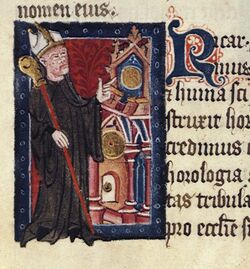 nomen eius.
Ricar
nus
t huma sci
struxit hor
credimus e
horologia s
tas tribula
pro ecclie st